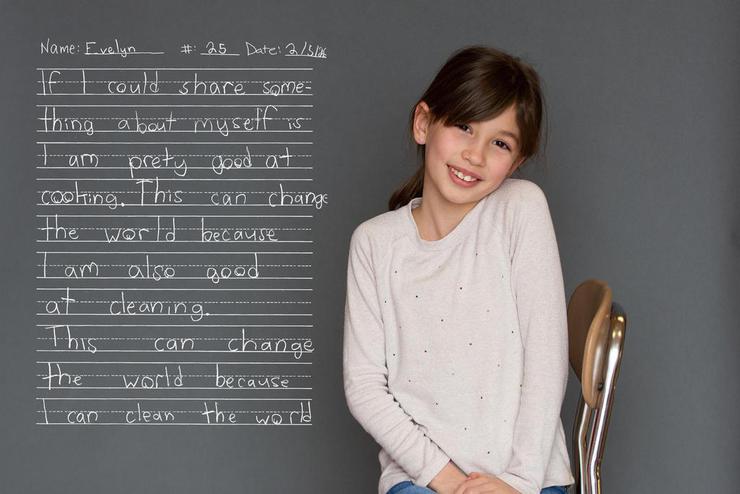 Name: Evelyn #: 25 Date: 2/3/26
If I could share some-
thing about myself is
I am prety good at
cooking. This can change
the world because
I am also good
at cleaning.
This can change
the world because
I can clean the world